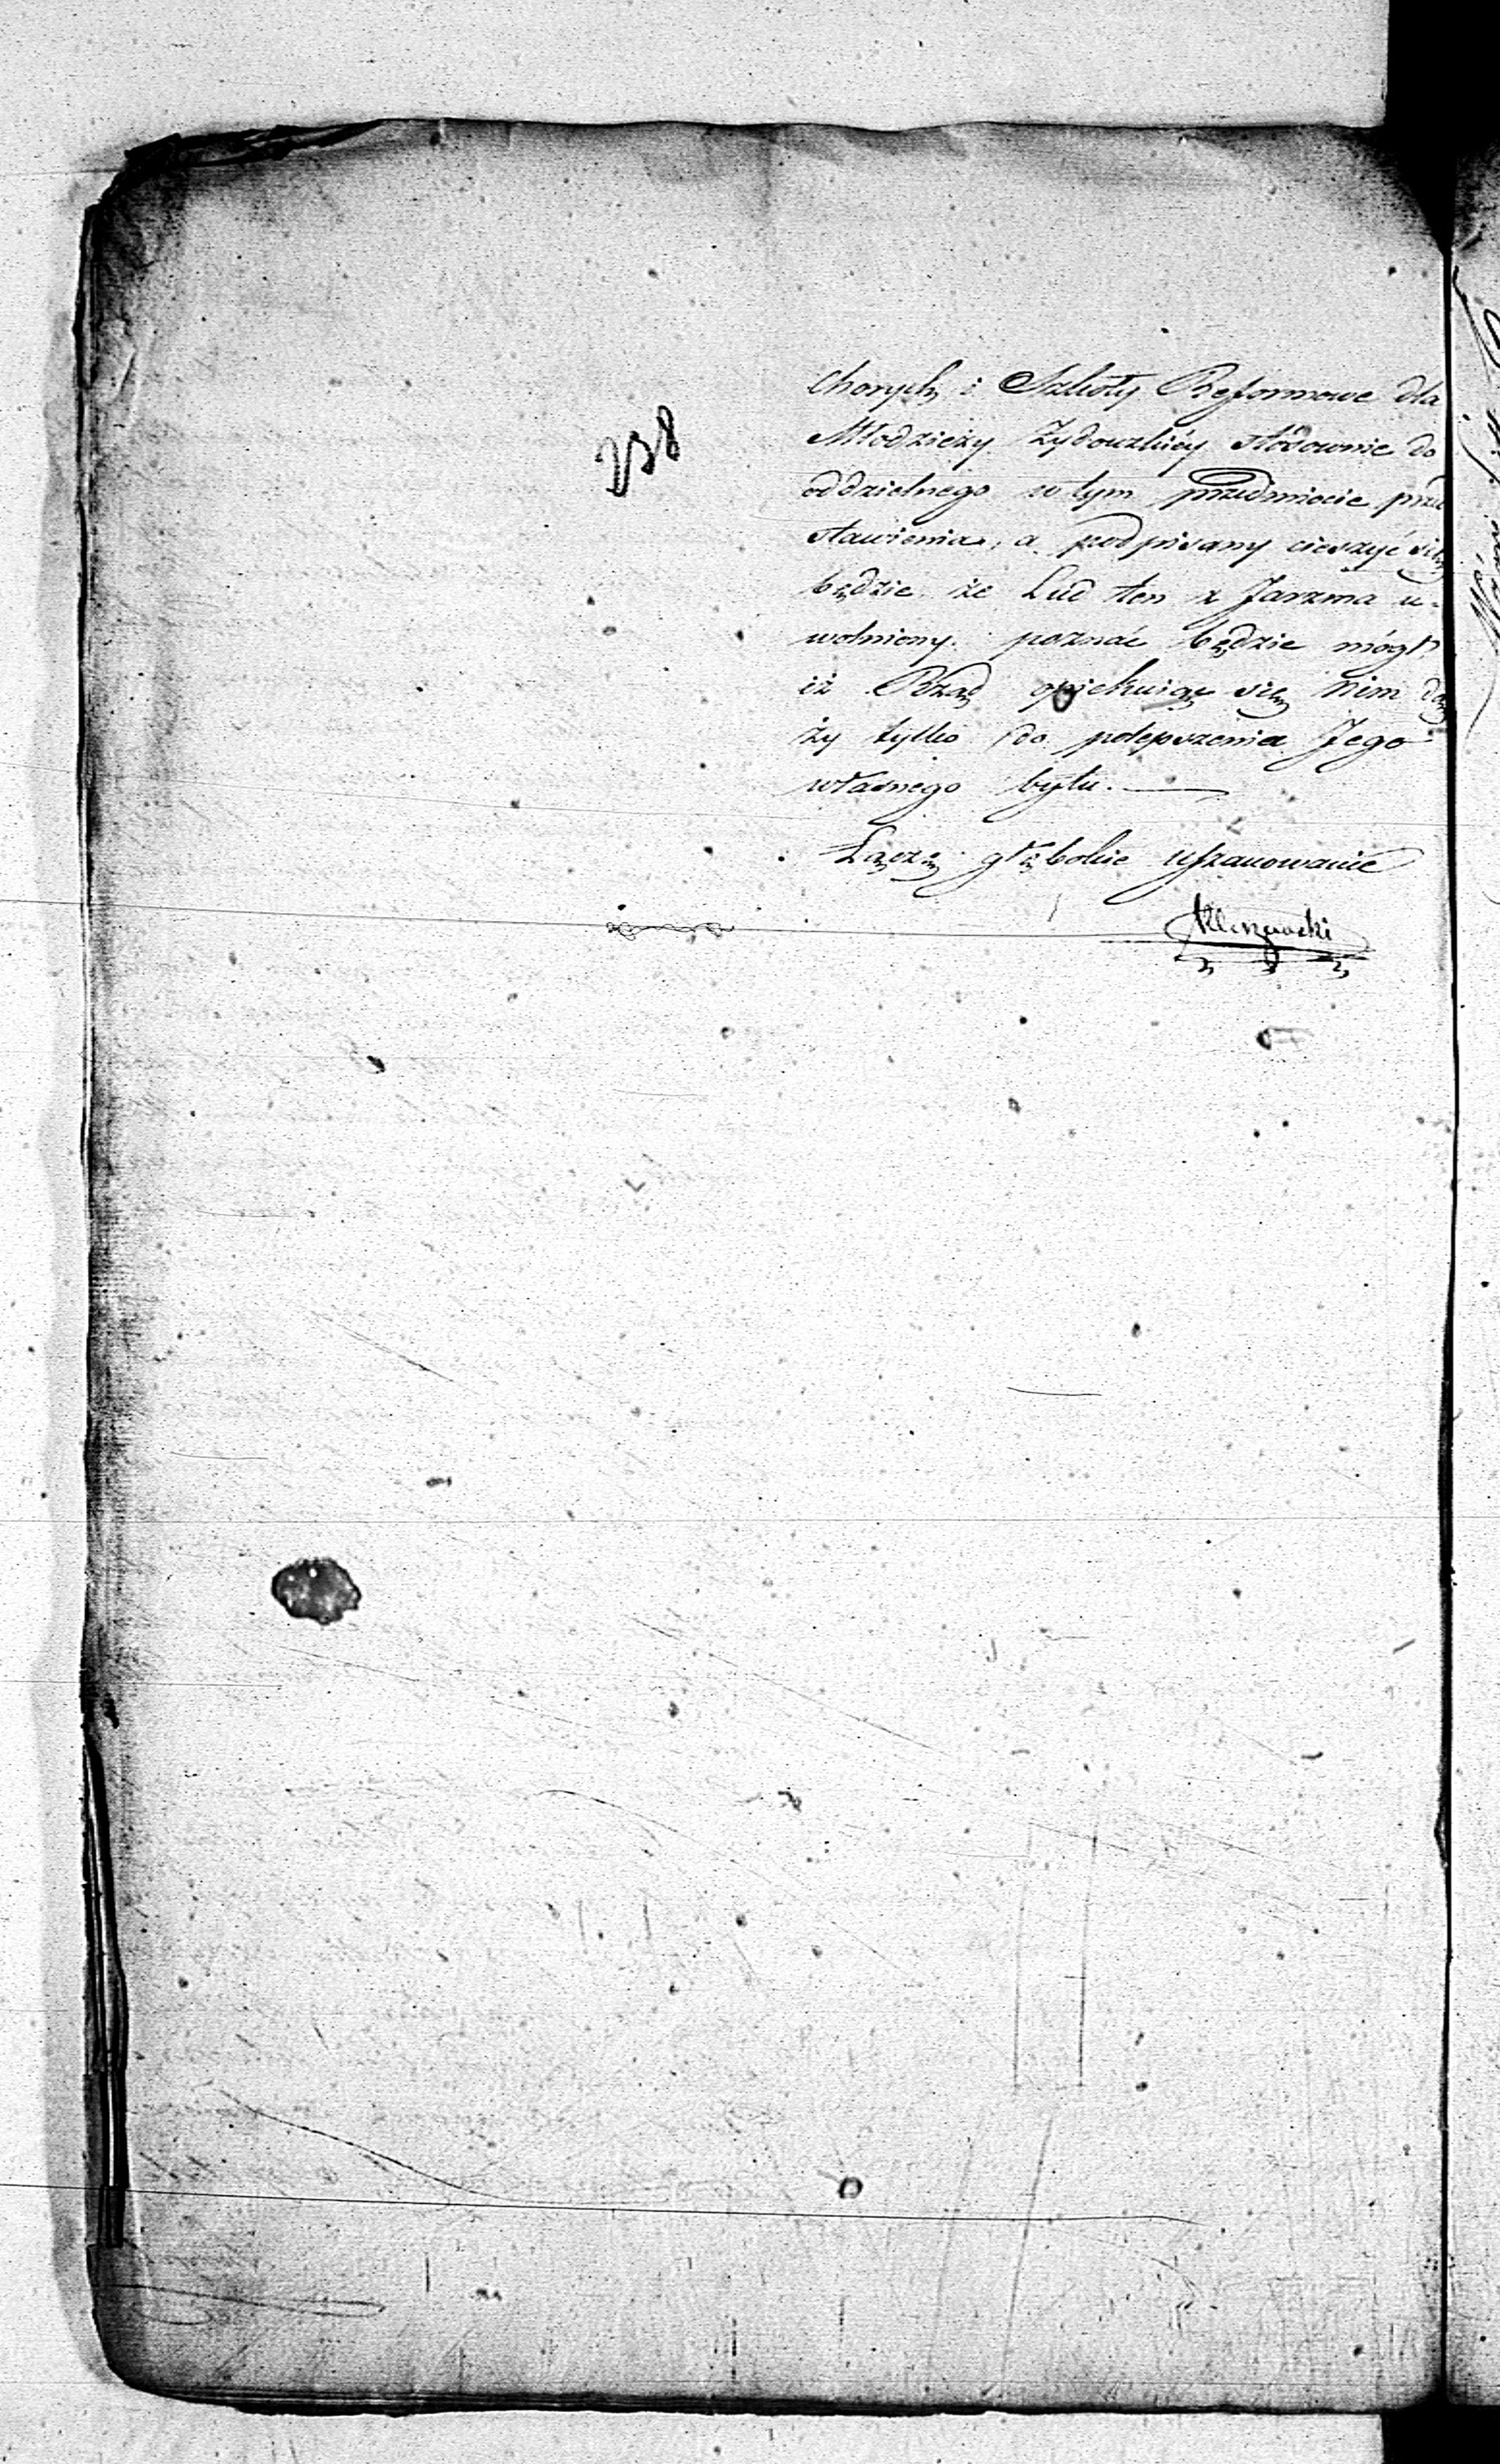 238
Chorych, i Szkoły Reformowe dla
Młodzieży Zydowskiéy stósownie do
oddzielnego w tym przedmiocie prze
stawienia, a podpisany cieszyć się
będzie że Lud ten z Jarzma u-
wolniony poznać będzie mógł
iż Rząd opiekuiąc się nim dą
ży tylko do polepszenia Jego
własnego bytu.
Łączę głębokie uszanowanie